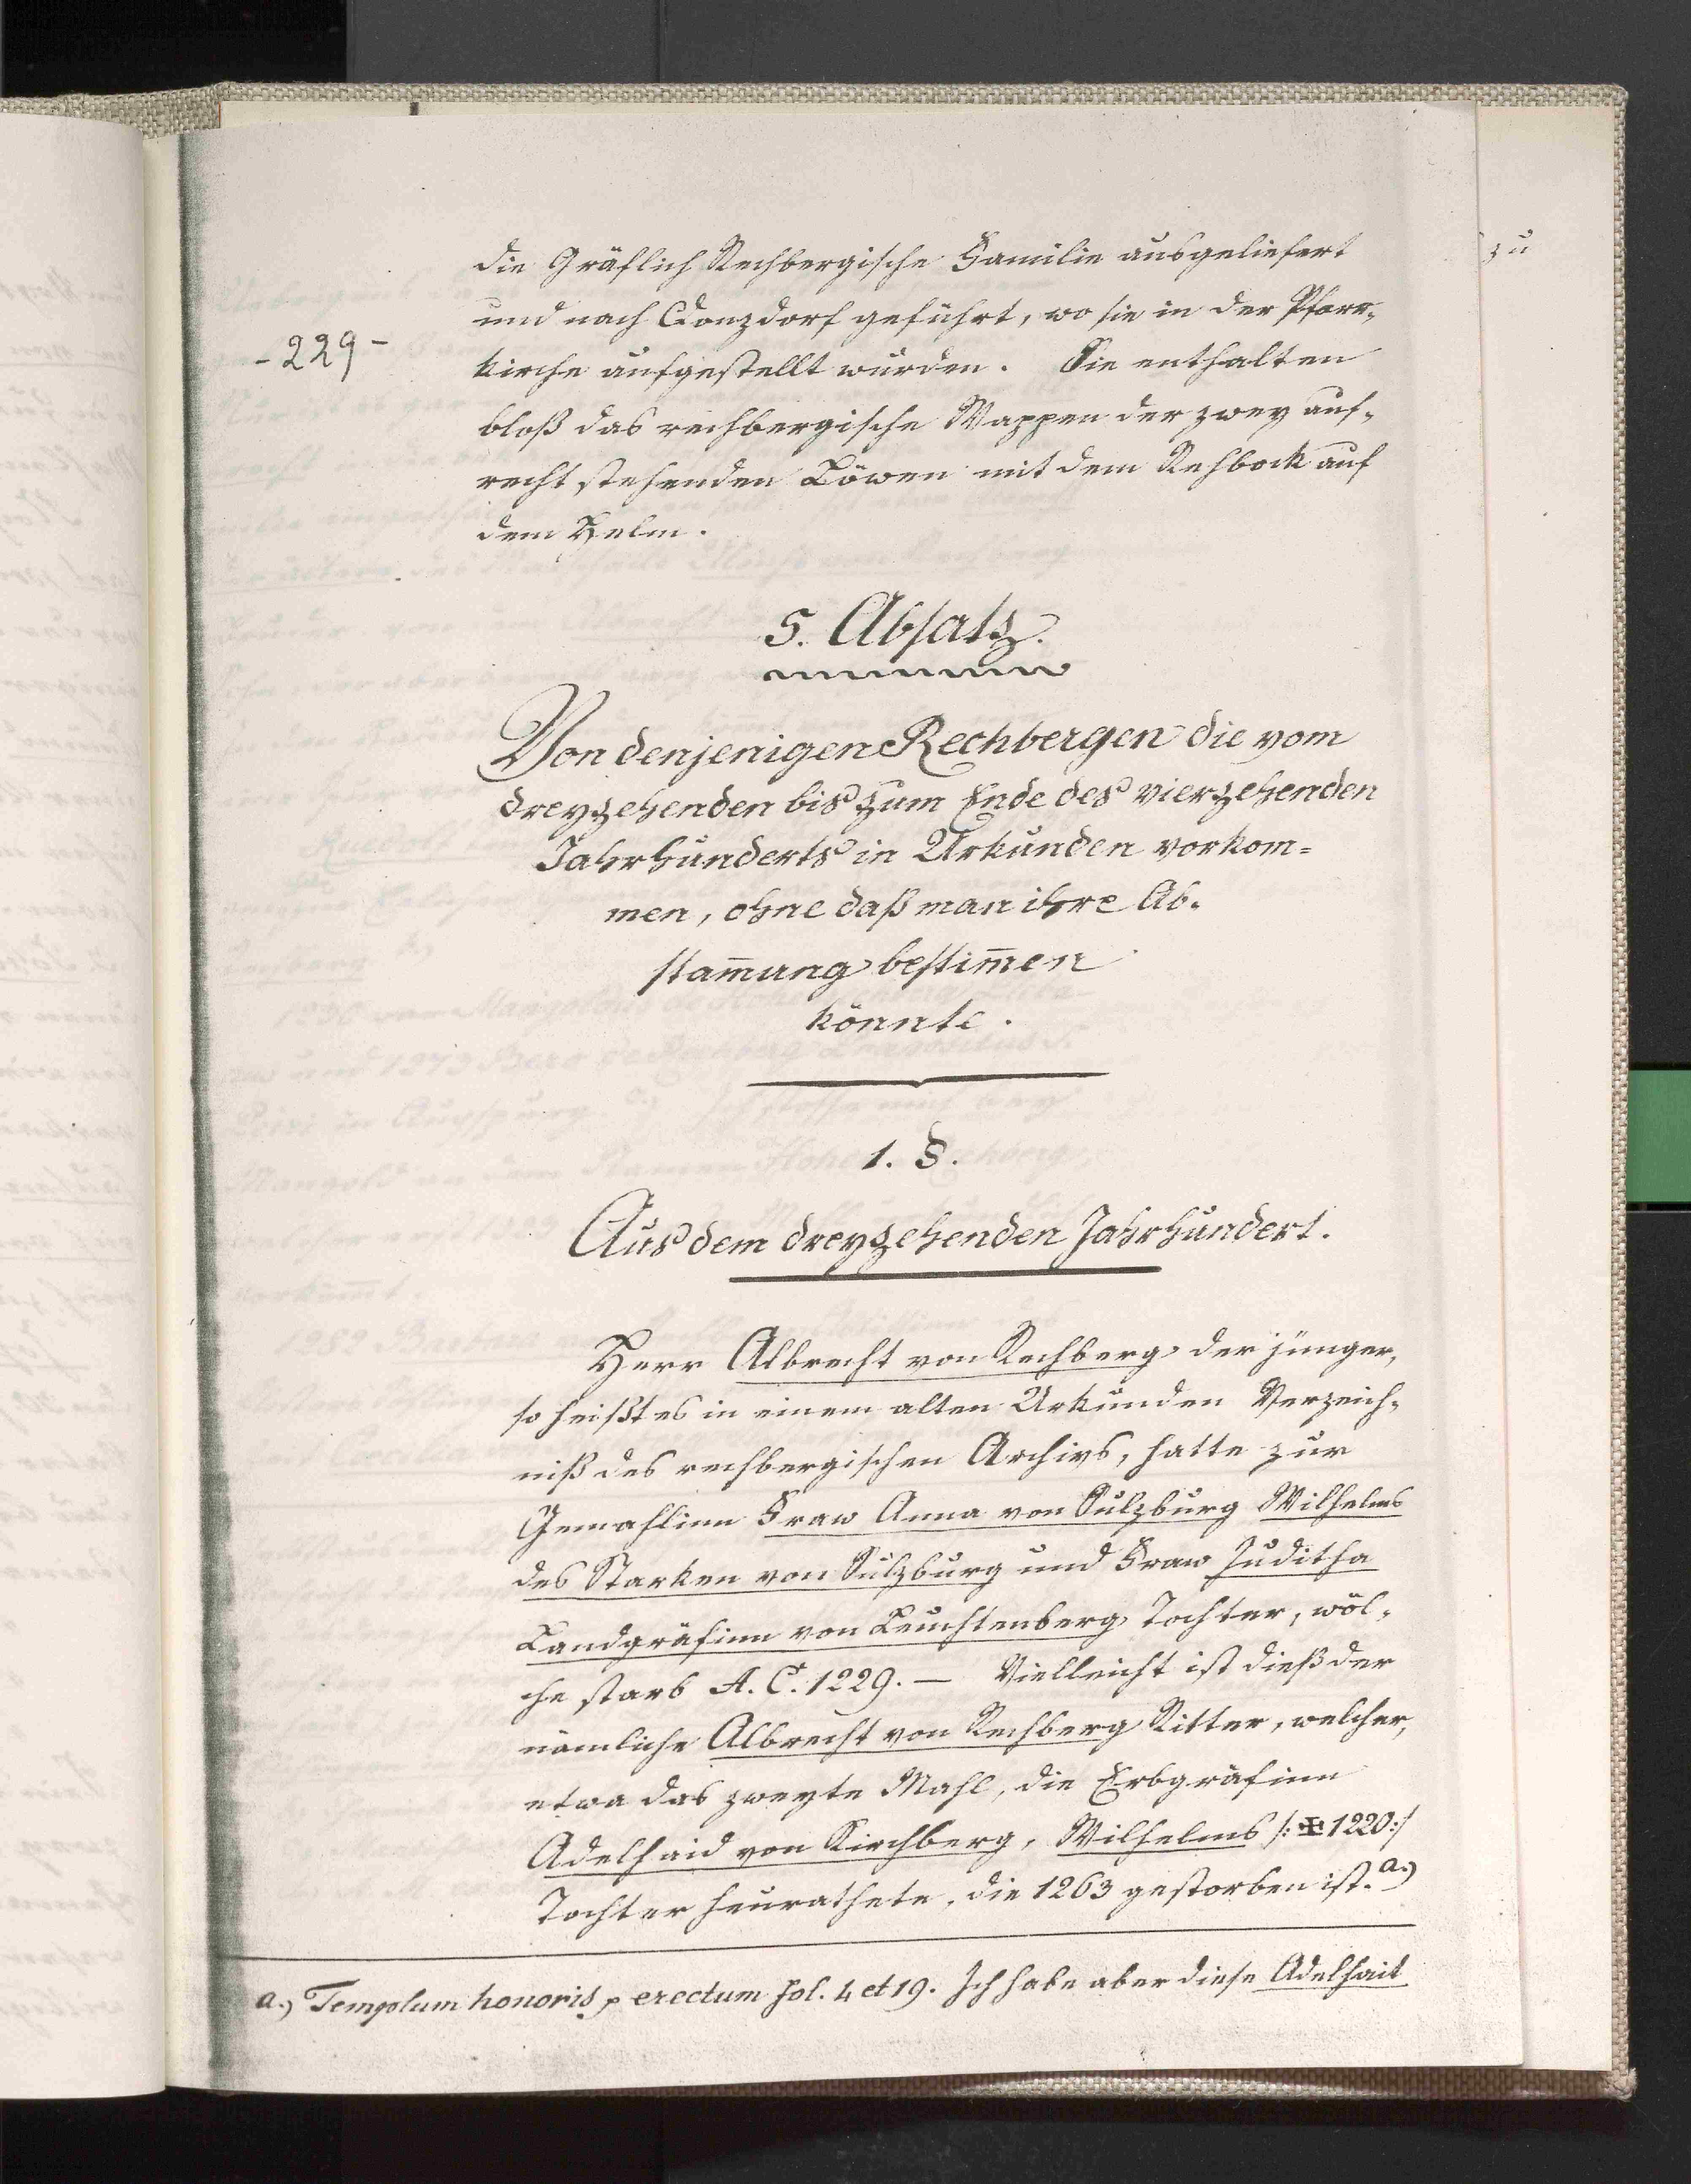 die Gräflich Rechbergische Familie ausgeliefert
und nach Donzdorf geführt, wo sie in der Pfarr-
- 229 -
kirche aufgestellt wurden. Sie enthalten
bloß das rechbergische Wappen der zwey auf-
recht stehenden Löwen mit dem Rehbock auf
dem Helm.
5. Absatz.
Von denjenigen Rechbergen die vom
dreyzehenden bis zum Ende des vierzehenden
Jahrhunderts in Urkunden vorkom=
men, ohne daß man ihre Ab-
stam̄ung bestim̄en
könnte.
1. §.
Aus dem dreyzehenden Jahrhundert.
Herr Albrecht von Rechberg der jünger,
so heißt es in einem alten Urkunden Verzeich-
niß des rechbergischen Archivs, hatte zur
Gemahlinn Fraw Anna von Sulzburg Wilhelms
des Starken von Sulzburg und Fraw Juditha
Landgräfinn von Leuchtenberg Tochter, wöl-
che starb A. C. 1229. — Vielleicht ist dieß der
nämliche Albrecht von Rechberg Ritter, welcher,
etwa das zweyte Mahl, die Erbgräfinn
Adelhaid von Kirchberg, Wilhelms /: ✠ 1220 :/
Tochter heurathete, die 1263 gestorben ist. a.)
a.) Templum honoris erectum fol. 4 et 19. Ich habe aber diese Adelhait
zu